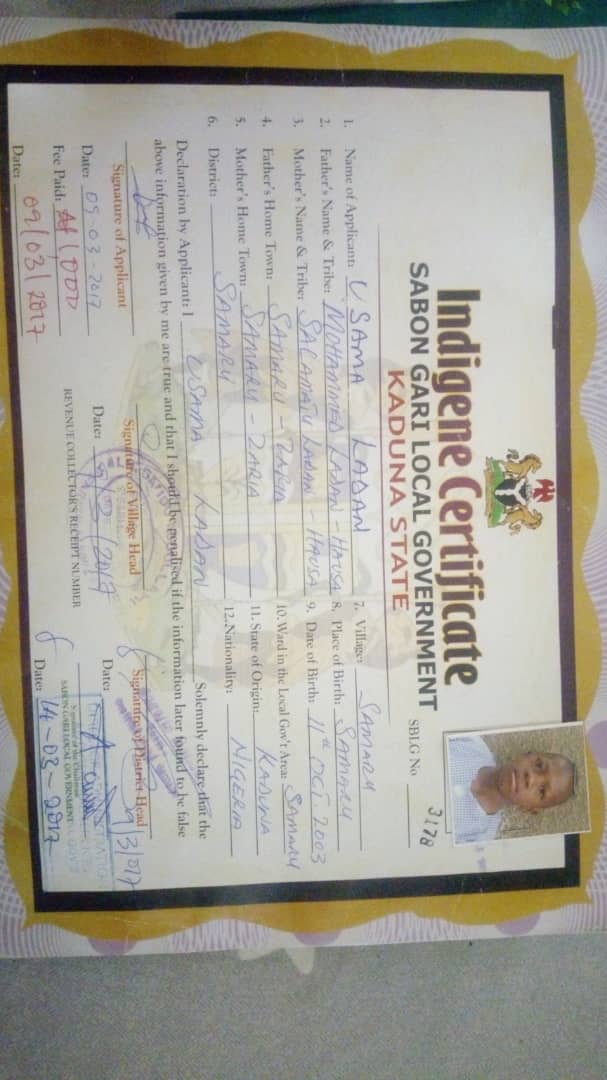 Indigene Certificate
SABON GARI LOCAL GOVERNMENT
KADUNA STATE
SBLG No 3178
1. Name of Applicant: USAMA LADAN
2. Father's Name & Tribe: MOHAMMED LADAN - HAUSA
3. Mother's Name & Tribe: SALAMATU LADAN - HAUSA
4. Father's Home Town: SAMARU - ZARIA
5. Mother's Home Town: SAMARU - ZARIA
6. District: SAMARU
7. Village: SAMARU
8. Place of Birth: SAMARU
9. Date of Birth: 11th OCT 2003
10. Ward in the Local Gov't Area: SAMARU
11. State of Origin: KADUNA
12. Nationality: NIGERIA
Declaration by Applicant: I USAMA LADAN Solemnly declare that the
above information given by me are true and that I should be penalised if the information later found to be false
Signature of Applicant
Signature of Village Head
Signature of District Head
Date: 09-03-2017
Date: /2017
Date: 9/3/017
Fee Paid: 1000
REVENUE COLLECTOR'S RECEIPT NUMBER
Signature of the Chairman
SABON GARI LOCAL GOVERNMENT
Date: 09/03/2017
Date: 14-03-2017